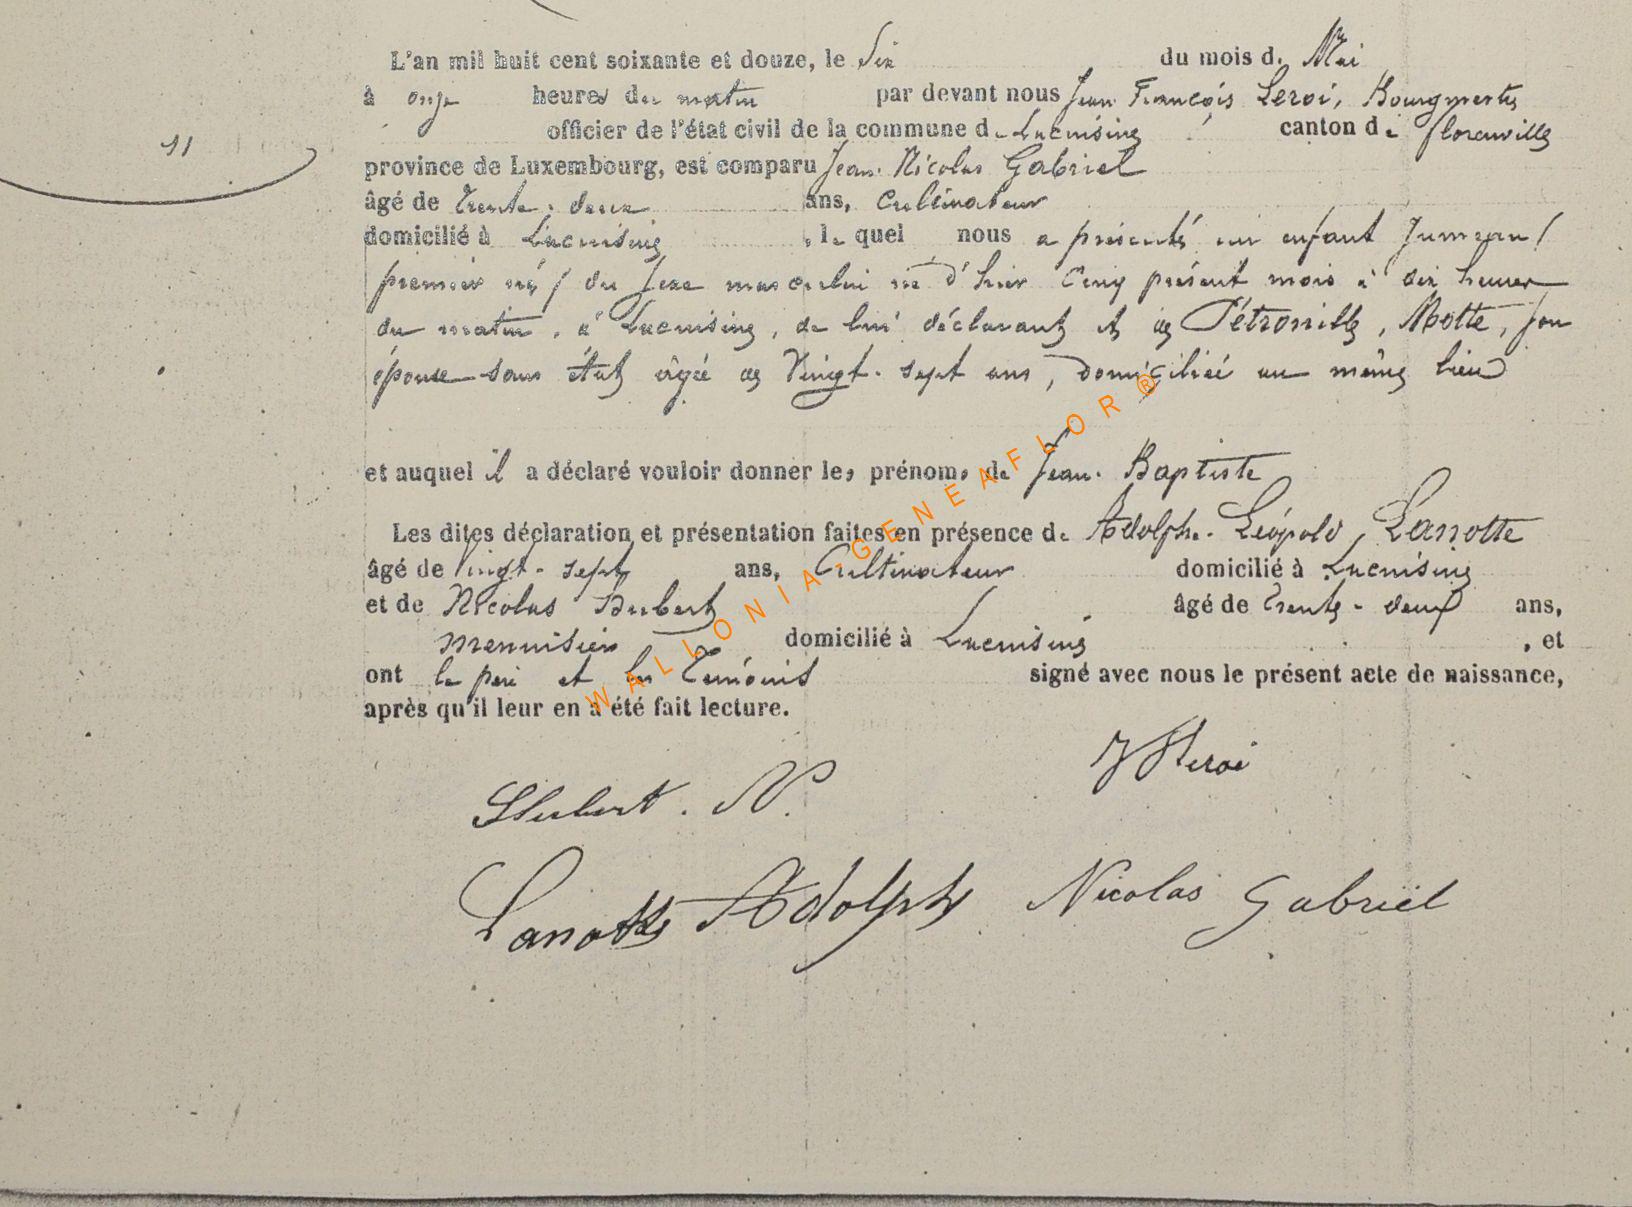 L'an mil huit cent soixante et douze, le Six du mois de Mai
à onze heures du matin par devant nous Jean François Leroi, Bourgmestre
officier de l'état civil de la commune de Lacuisine canton de florenville
11
province de Luxembourg, est comparu Jean Nicolas Gabriel
âgé de Trente-deux ans, Cultivateur
domicilié à Lacuisine, lequel nous a présenté un enfant Jumeau /
premier né / du sexe masculin né d'hier Cinq présent mois à dix heures
du matin, à Lacuisine, de lui déclarant et de Pétronille, Motte, son
épouse sans état âgée de Vingt-sept ans, domiciliée au même lieu
et auquel il a déclaré vouloir donner les prénoms de Jean-Baptiste
Les dites déclaration et présentation faites en présence de Adolphe-Léopold Lanotte
âgé de Vingt-sept ans, Cultivateur domicilié à Lacuisine
et de Nicolas Hubert âgé de Trente-deux ans,
menuisier domicilié à Lacuisine, et
ont le père et les Témoins signé avec nous le présent acte de naissance,
après qu'il leur en a été fait lecture.
WALLONIA-GENEAFLOR®
JFLeroi
Hubert. N.
Lanotte Adolphe Nicolas Gabriel